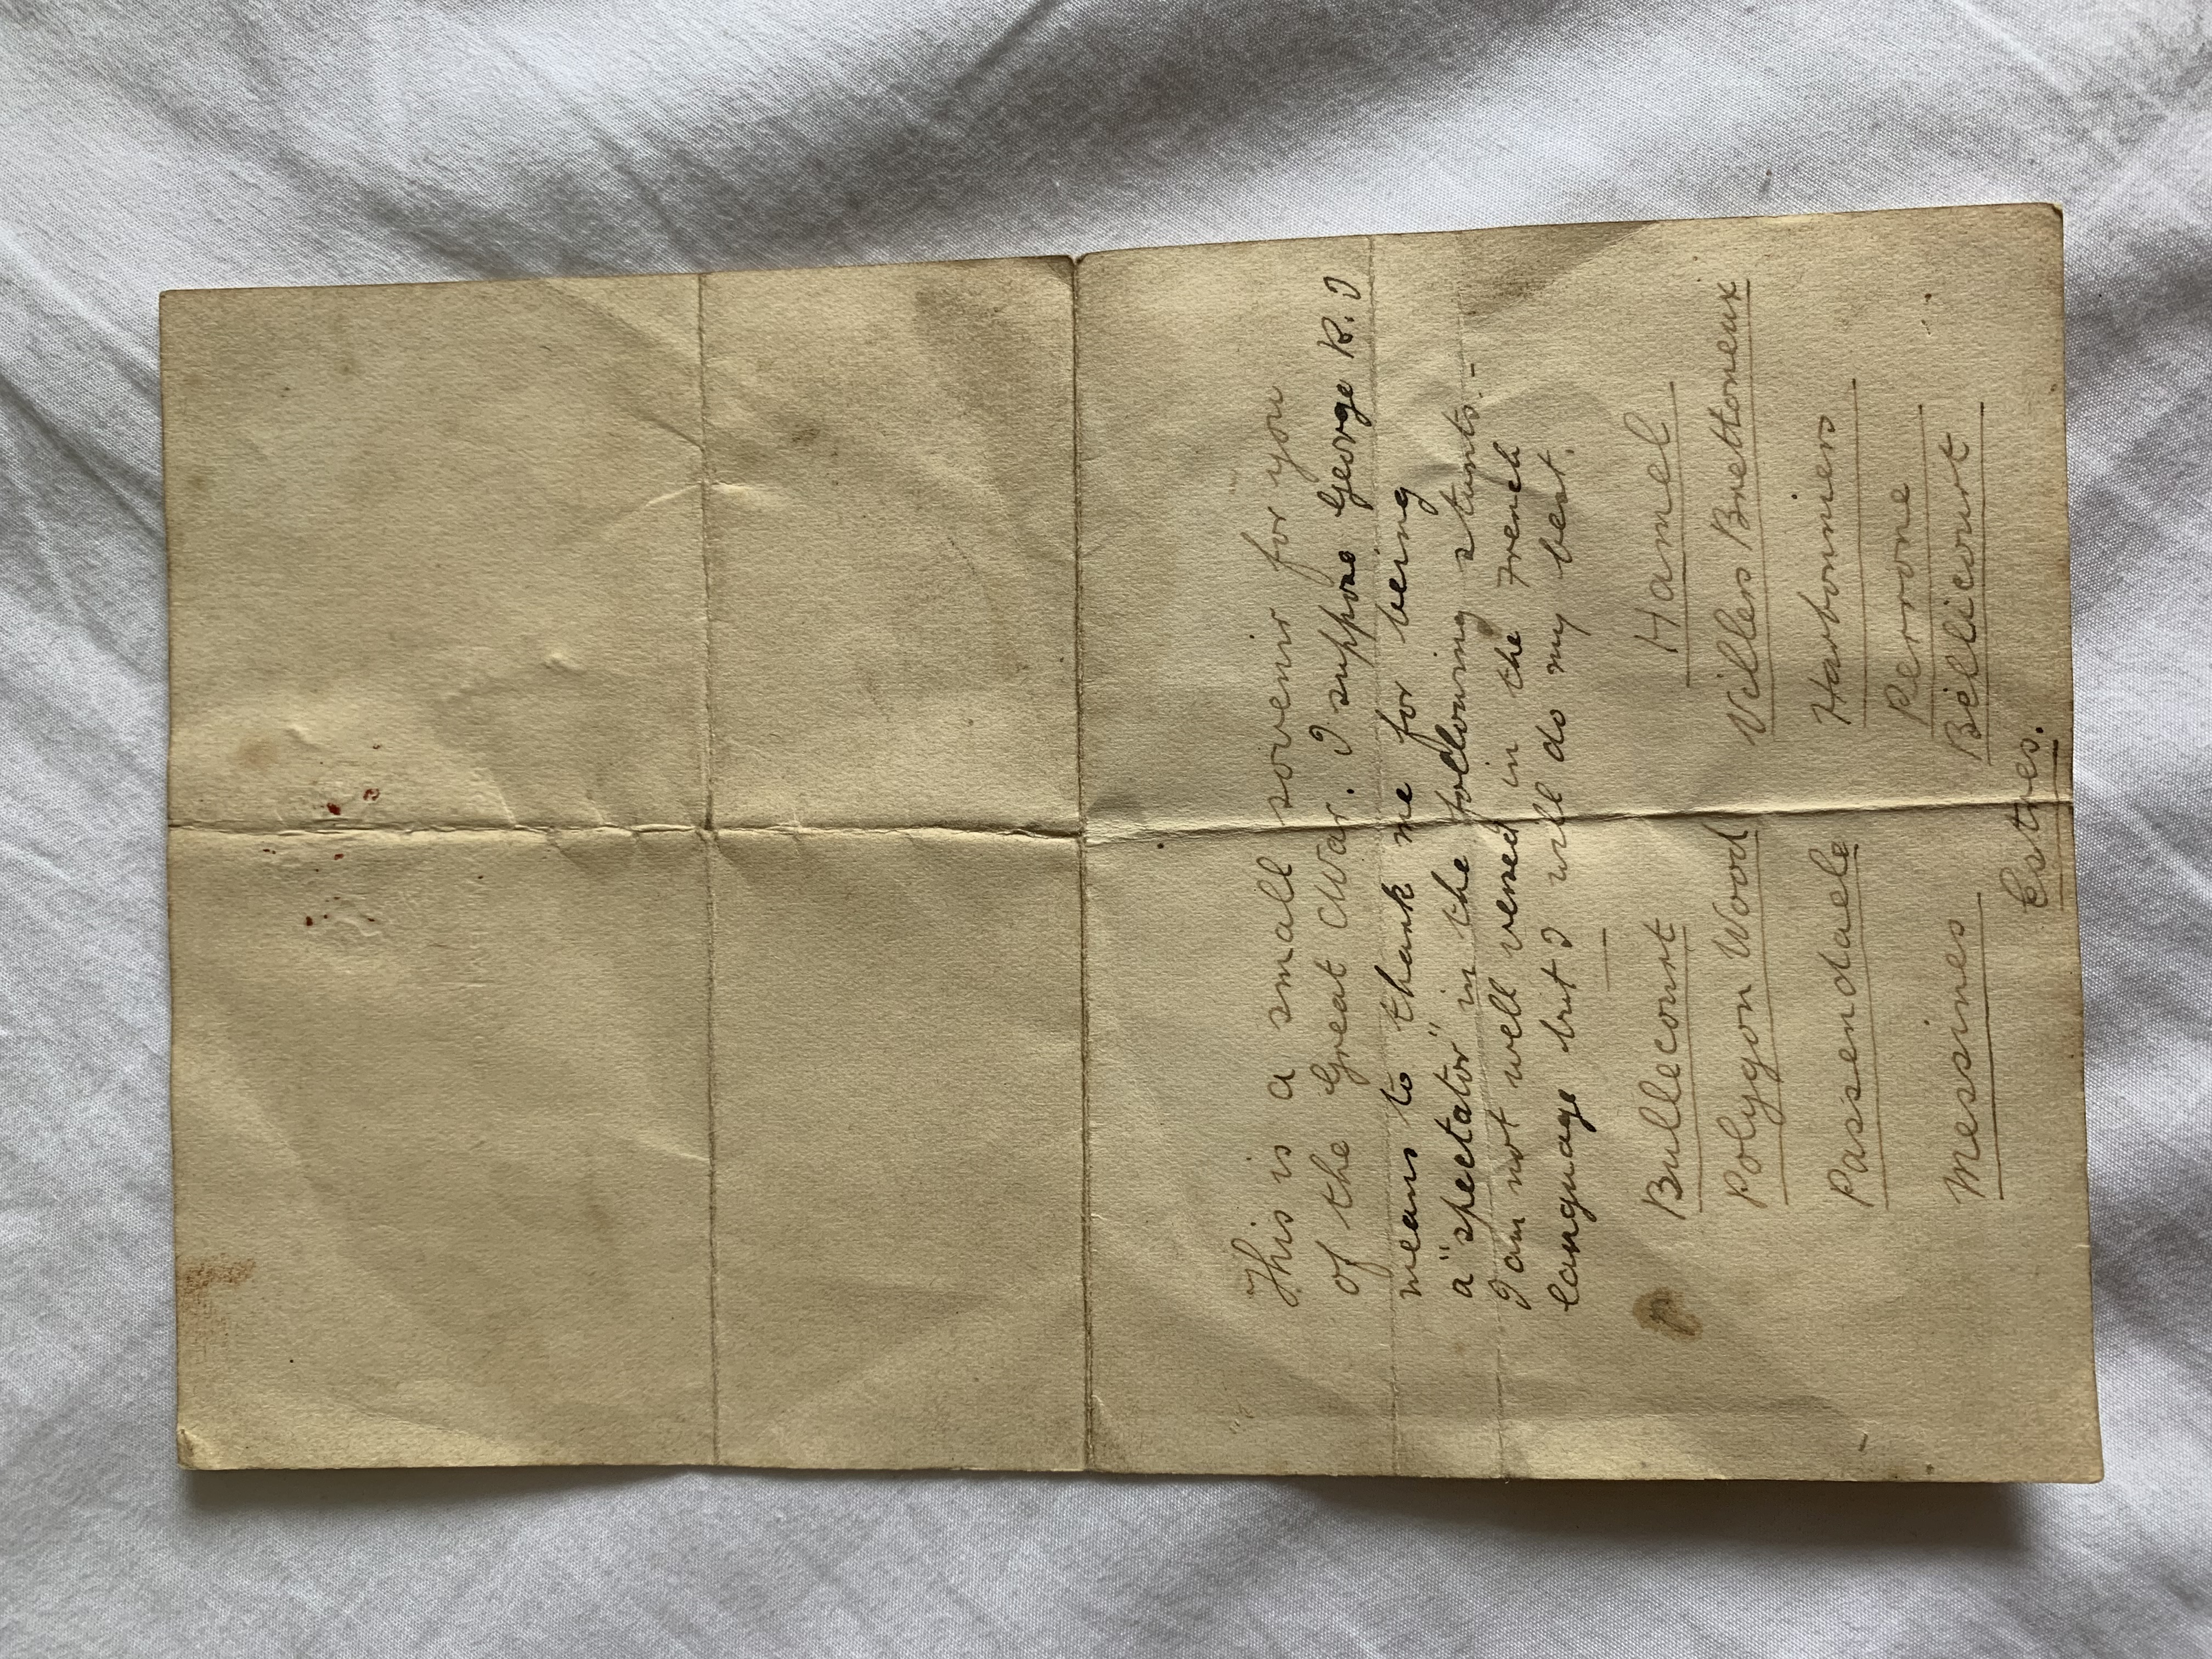 This is a small sovenir for you
of the Great War. I suppose George R. I
means to thank me for being
a "spectator" in the following stunts.-
I am not well versed in the French
language but I will do my best.
Bullecourt Hamel
Polygon Wood Villers Brettoneux
Passendaele Harbonniers
Messines Perrone
Bellicourt
Estres.